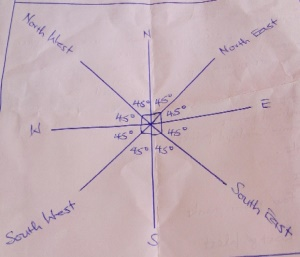 North West
N
North East
45° 45°
45° 45°
W
E
45° 45°
45° 45°
South West
South East
S